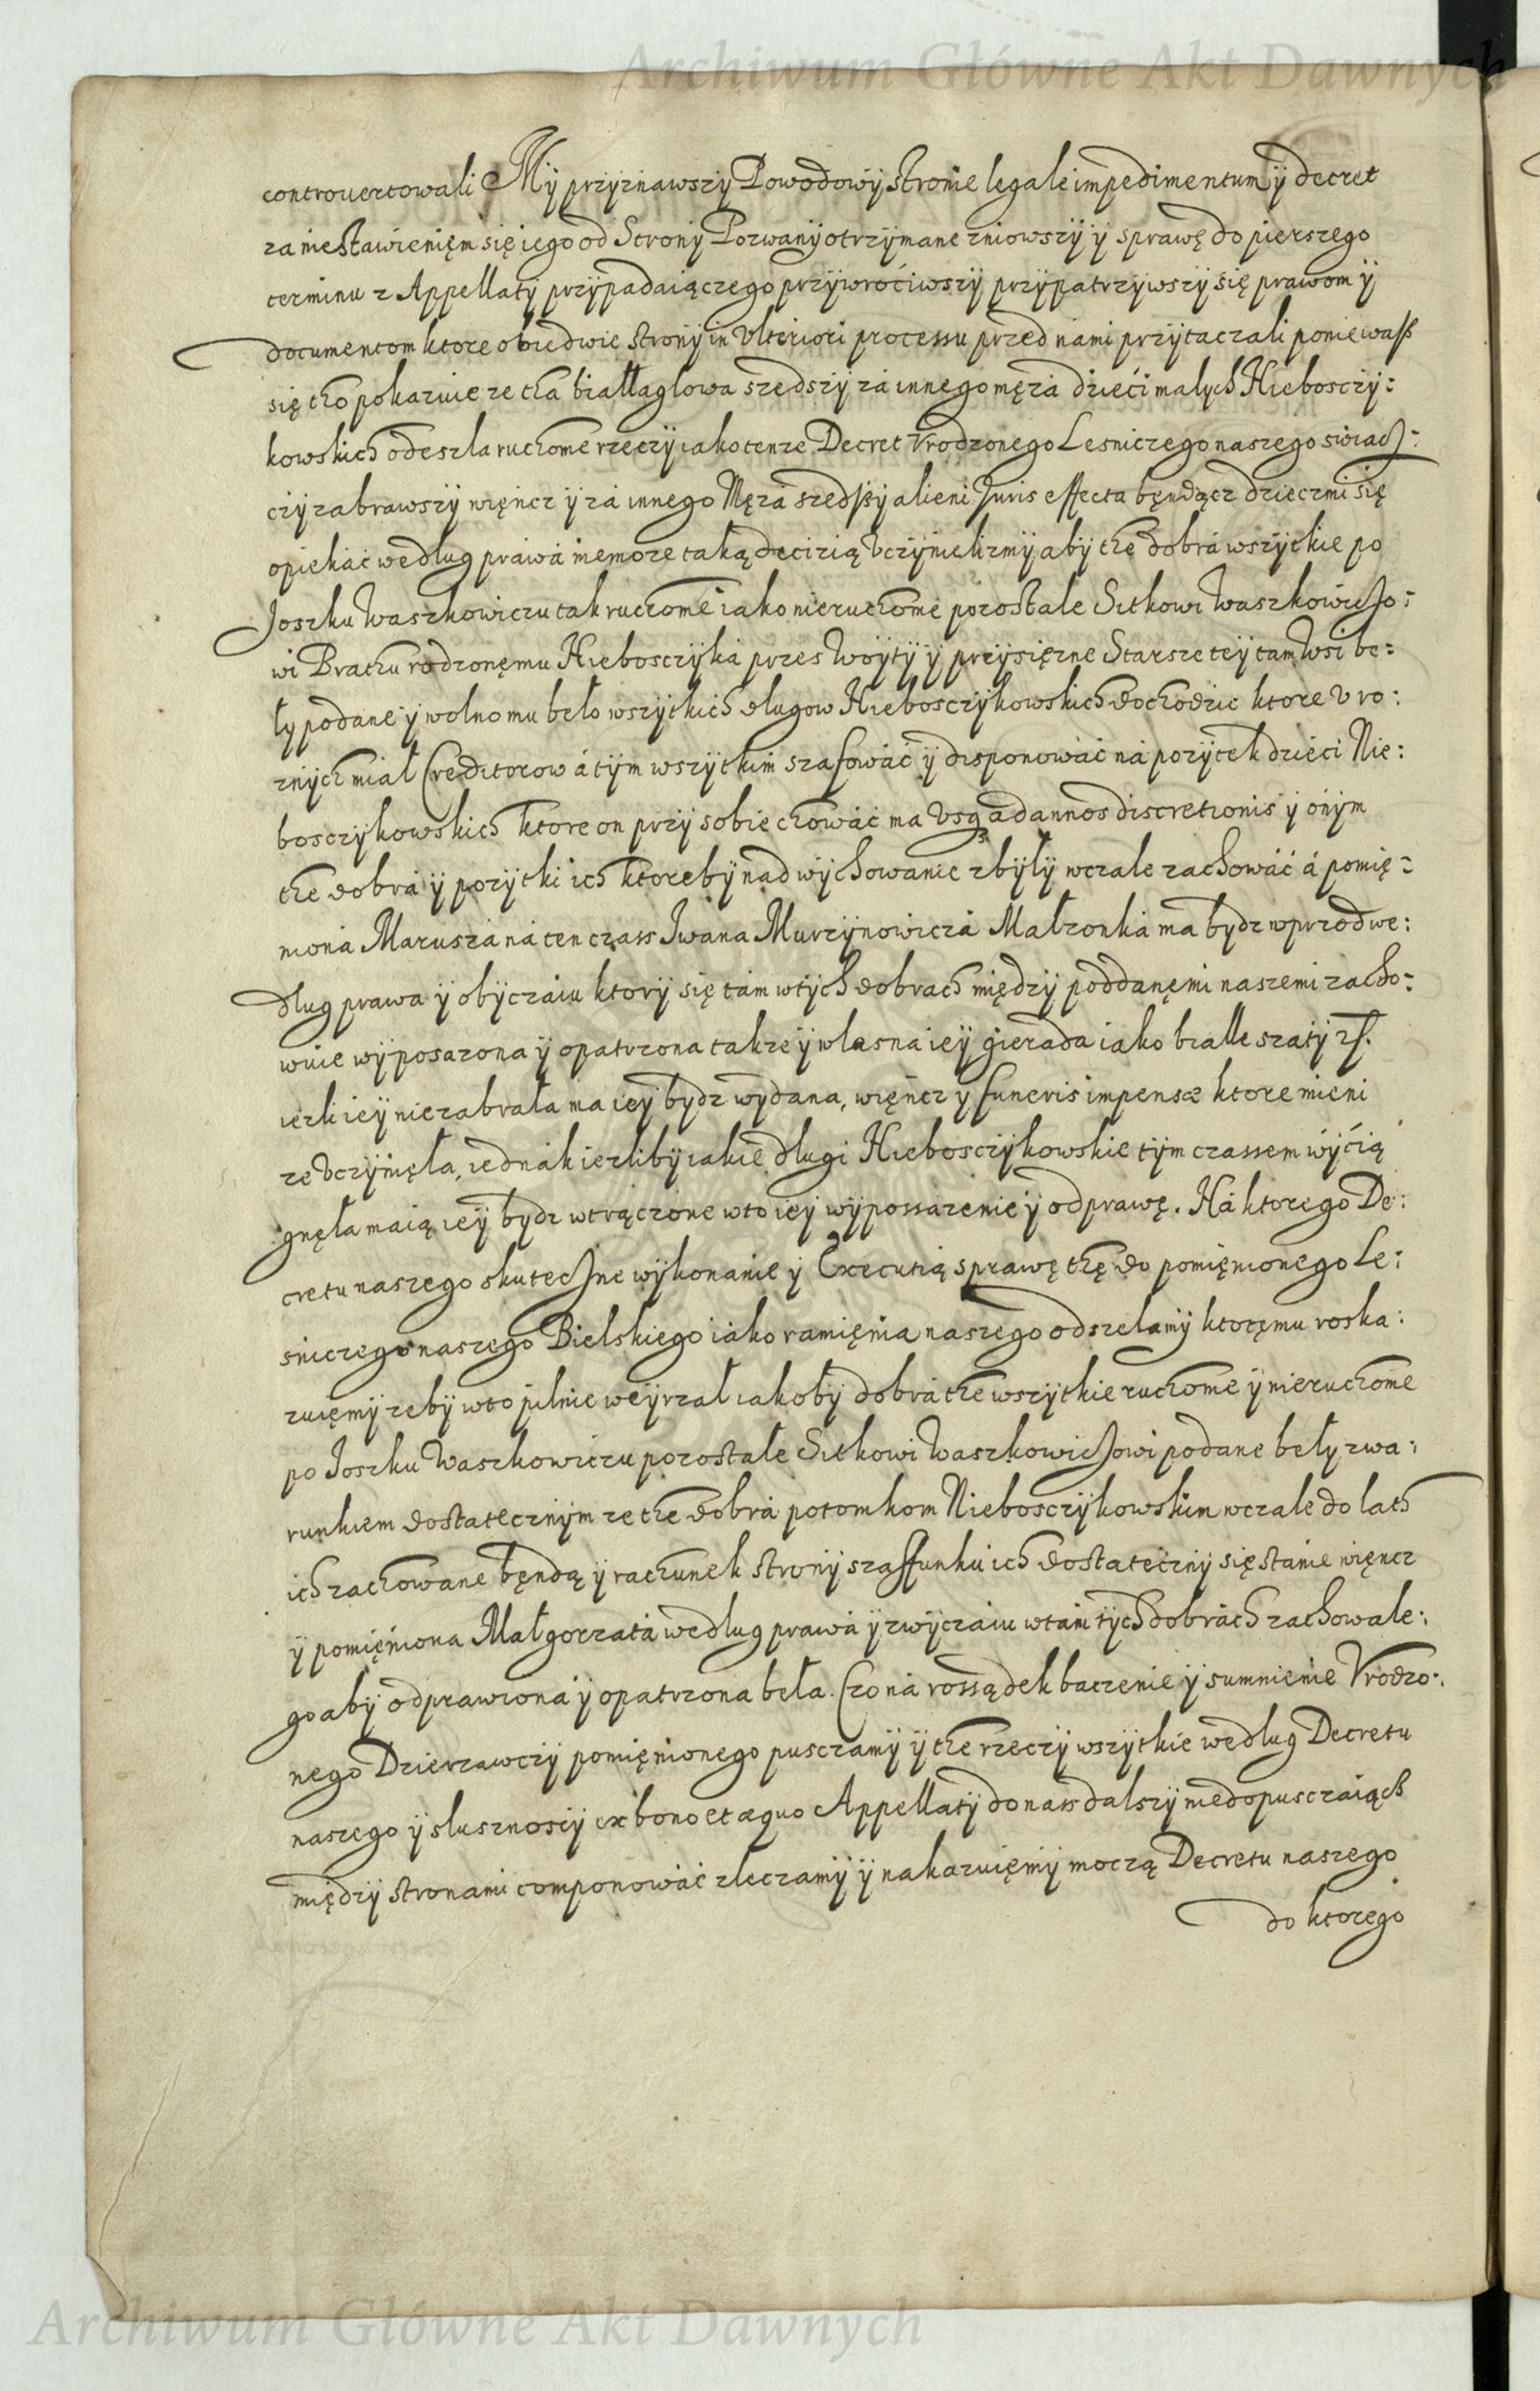 Archiwum Główne Akt Dawnych
controuertowali My przyznawszy Powodowÿ stronie legale impedimentum ÿ decret
za niestawienięm się iego od Stronÿ Pozwanÿ otrzÿmane zniowszÿ ÿ sprawę do pierszego
terminu z Appellatÿ przÿpadaiączego przÿwroćiwszÿ przÿpatrzÿwszÿ się prawom ÿ
documentom ktore obiedwie stronÿ in Vlteriori processu przed nami przÿtaczali poniewaß
się tho pokazuie ze tha białłagłowa szedszÿ za innego męża dzieći małych Niebosczÿ:
kowskich odeszła ruchome rzeczÿ iako tenze Decret Vrodzonego Lesniczego naszego swiad:
czÿ zabrawszÿ więncz ÿ za innego Męża szedßÿ alieni Juris effecta będącz dzieczmi się
opiekać według prawa niemoze taką decizią Vczÿnielizmÿ abÿ the dobra wszÿtkie po
Joszku Waszkowiczu tak ruchome iako nieruchome pozostałe Sitkowi Waszkowiczo:
wi Brathu rodzonęmu Niebosczÿka przes Woÿtÿ ÿ przÿsięzne Starsze teÿ tam Wsi be:
łÿ podane ÿ wolno mu beło wszÿtkich długow Niebosczÿkowskich dochodzic ktore v ro:
znÿch miał Creditorow á tÿm wszÿtkim szafować ÿ disponować ná pozÿtek dzieći Nie:
bosczÿkowskich ktore on przÿ sobie chować ma Vsq ad annos discretionis ÿ onÿm
the dobrá ÿ pozÿtki ich ktorebÿ nad wÿchowanie zbÿłÿ wczale zachować á pomię:
niona Maruszá ná ten czass Iwana Murzÿnowiczá Małzonká ma bÿdz wprzod we:
dług prawa ÿ obÿczaiu ktorÿ się tám w tÿch dobrach międzÿ poddanęmi naszemi zacho:
wuie wÿposazona ÿ opatrzona takze ÿ własna ieÿ gierada iako białłe szatÿ zs.
iezli ieÿ niezabrała ma ieÿ bÿdz wÿdana, więncz ÿ funeris impensæ ktore mieni
ze Vczÿnięła, iednák iezlibÿ iakie długi Niebosczÿkowskie tÿm czassem wÿćią
gnęła maią ieÿ bÿdz wtrączone w to ieÿ wÿpossazenie ÿ odprawę. Ná ktorego De:
cretu naszego skuteczne wÿkonanie ÿ Executią sprawę thę do pomięnionego Le:
sniczego naszego Bielskiego iáko ramięnia naszego odszełamÿ ktoręmu roska:
zuięmÿ zebÿ w to pilnie weÿrzał iakobÿ dobrá the wszÿtkie ruchome ÿ nieruchome
po Joszku Waszkowiczu pozostałe Sitkowi Waszkowiczowi podane bełÿ z wa:
runkiem dostatecznÿm ze the dobra potomkom Niebosczÿkowskim wczale do lath
ich zachowane będą ÿ rachunek stronÿ szaffunku ich dostatecznÿ się stanie więncz
ÿ pomięniona Małgorzatá według prawá ÿ zwÿczaiu w tám tÿch dobrách zachowałe:
go abÿ odprawiona ÿ opatrzona beła. Czo ná rossądek baczenie ÿ sumnienie Vrodzo:
nego Dzierzawczÿ pomięnionego pusczamÿ ÿ the rzeczÿ wszÿtkie według Decretu
naszego ÿ słusznosÿ ex bono et æquo Appellatÿ do nass dalszÿ niedopusczaiącz
międzÿ stronami componować zleczamÿ ÿ nakazuięmÿ moczą Decretu naszego
do ktorego
Archiwum Główne Akt Dawnych